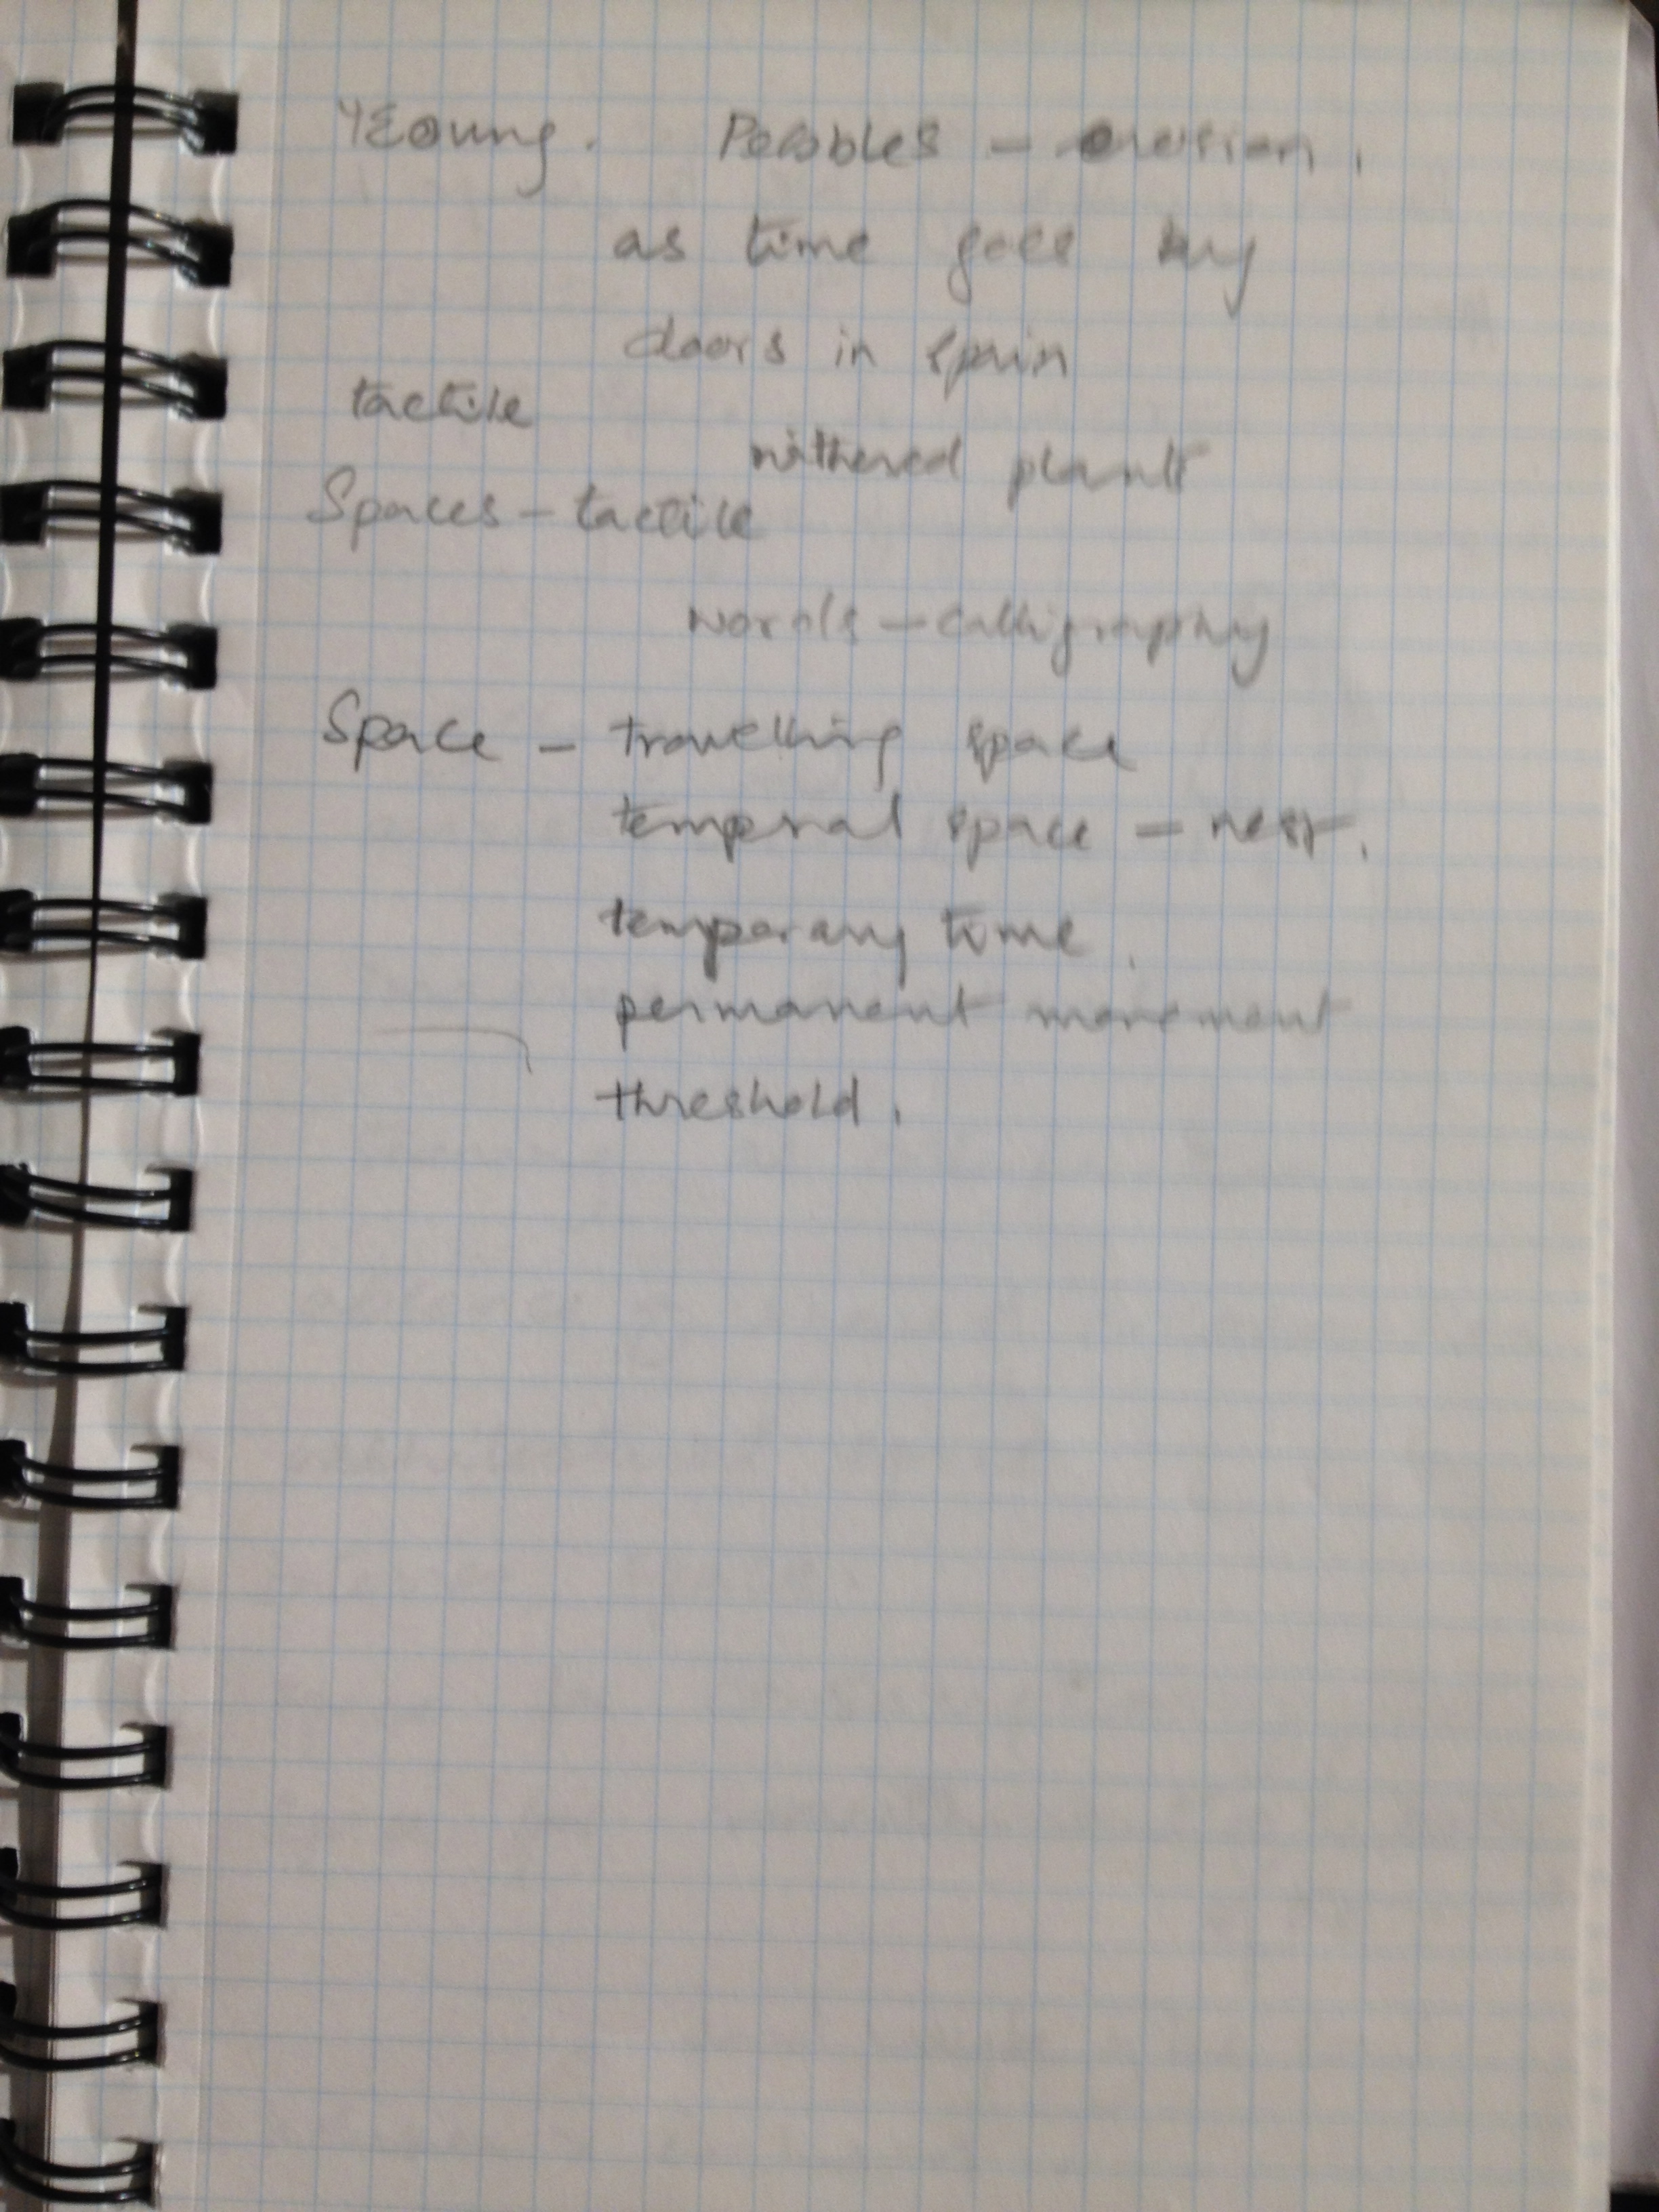 YEoung. Pebbles - erosion.
as time goes by
doors in spain
tactile
withered plants
Spaces - tactile
words - calligraphy
Space - travelling space
temporal space - nest.
temporary time.
permanent movement
threshold.